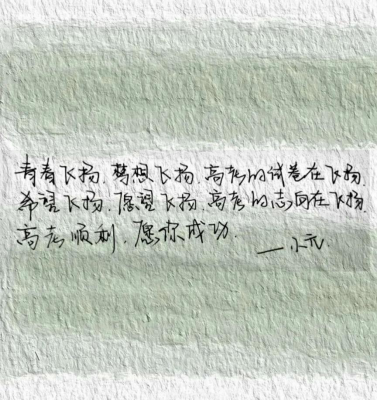 青春飞扬.梦想飞扬.高考的试卷在飞扬.
希望飞扬.愿望飞扬.高考的志向在飞扬.
高考顺利.愿你成功.
—小元